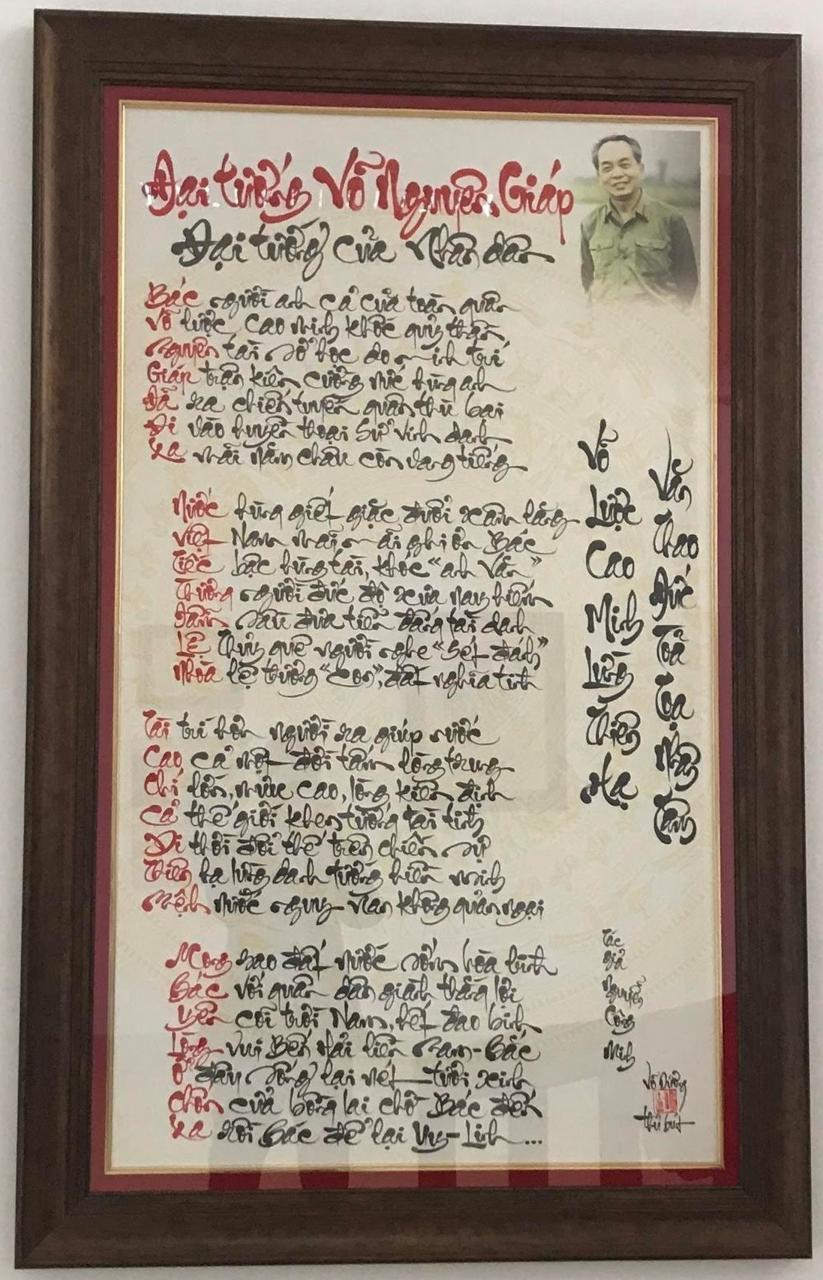 Đại tướng Võ Nguyên Giáp
Đại tướng của Nhân dân
Bác người anh cả của toàn quân
Võ lược cao minh khốc quỷ thần
Nguyên tài sở học do minh trí
Giáp trận kiên cường mức hùng anh
Đã ra chiến tuyến quân thù bại
Đi vào huyền thoại Sử vinh danh
Xa mãi năm châu còn vang tiếng
Nước hùng giết giặc đuổi xâm lăng
Việt Nam mãi mãi ghi ơn Bác
Tiếc bậc hùng tài, khóc "anh Văn"
Thương người đức độ xưa nay hiếm
Dân sầu đưa tiễn đấng tài danh
Lệ Thủy quê người nghe "sét đánh"
Nhòa lệ thương "con", đất nghĩa tình
Tài trí hơn người ra giúp nước
Cao cả một đời tấm lòng trung
Chí lớn, mưu cao, lòng kiên định
Cả thế giới khen tướng tài tình
Di thời đổi thế trên chiến sự
Thiên hạ lừng danh tướng hiền minh
Mệnh nước nguy nan không quản ngại
Mong sao đất nước sớm hòa bình
Bác với quân dân giành thắng lợi
Yên cõi trời Nam, hết đao binh
Lòng vui Bến Hải liền Nam-Bắc
Ở đâu sống lại nét tươi xinh
Chốn cửa bồng lai chờ Bác đến
Xa rồi Bác để lại Uy-Linh...
Văn Thao Đức Toả Toạ Nhân Tâm
Võ Lược Cao Minh Lừng Thiên Hạ
Tác giả Nguyễn Công Minh
Võ Dương
thủ bút